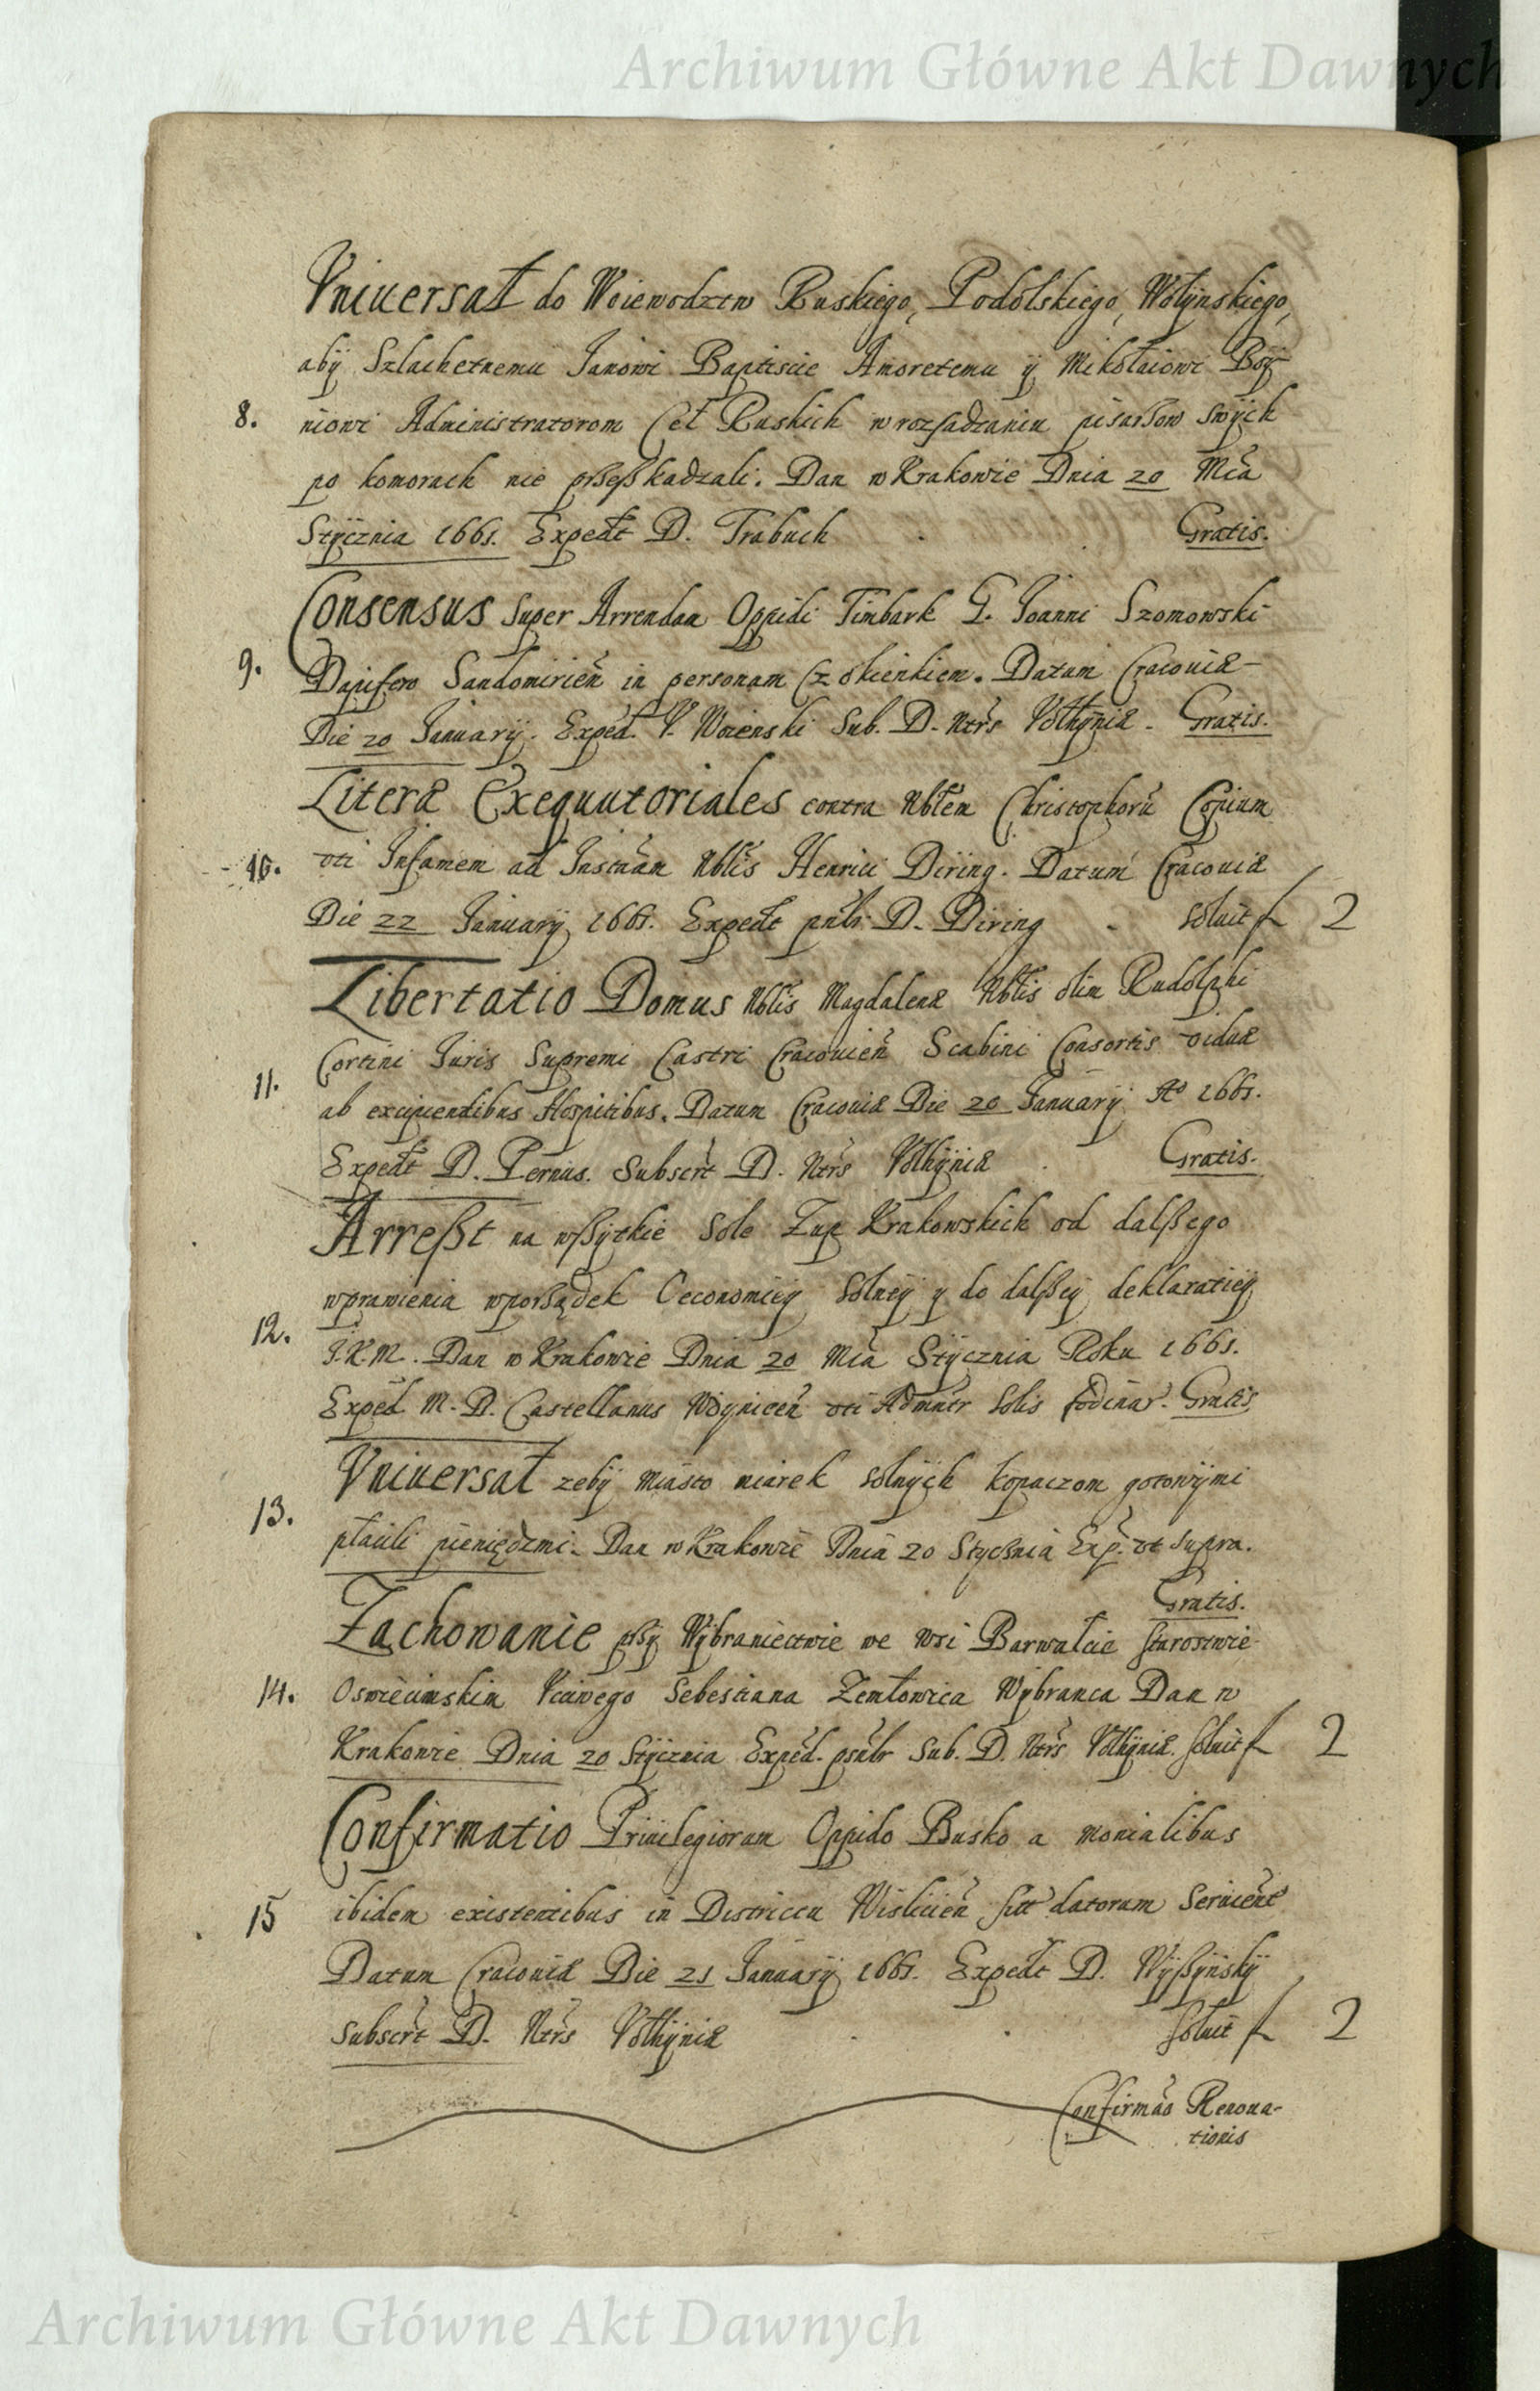 Archiwum Główne Akt Dawnych
Vniuersał do Woiewodztw Ruskiego, Podolskiego, Wołÿnskiego,
abÿ Szlachetnemu Janowi Baptiscie Amoretemu ÿ Mikołaiowi Boÿ-
8. niowi Administratorom Ceł Ruskich w rozsadzaniu pisarßow swÿch
po komorach nie prßeßkadzali. Dan w Krakowie Dnia 20 Mća
Stÿcznia 1661. Expedt D. Trabuch Gratis.
Consensus super Arrendam Oppidi Timbark G. Joanni Szomowski
9. Dapifero Sandomirień in personam Czokienkiem. Datum Cracouiæ
Die 20 Januarÿ. Exped. V. Woienski Sub. D. Ntrs Volhÿniæ. Gratis.
Literæ Exequutoriales contra Nblem Christophorũ Copium
10. vti Infamem ad Instnãm Nblis Henrici Diring. Datum Cracouiæ
Die 22 Januarÿ 1661. Expedt pnlr D. Diring soluit f 2
Libertatio Domus Nblis Magdalenæ Nblis olim Rudolphi
Cortini Juris Supremi Castri Cracouień Scabini Consortis viduæ
11. ab excipiendibus Hospitibus. Datum Cracouiæ Die 20 Januarÿ Ao 1661.
Expedt D. Pernus. Subscrt D. Ntrs Volhÿniæ Gratis.
Arreßt na wßÿtkie Sole Zup Krakowskich od dalßego
wprawienia w porßądek Oeconomiÿ Solneÿ y do dalßeÿ deklaratieÿ
12. J.K.M. Dan w Krakowie Dnia 20 Mća Stÿcznia Roku 1661.
Exped M. D. Castellanus Woÿniceń vti Admntr Solis fodinar. Gratis
Vniuersał zebÿ miasto miarek solnÿch kopaczom gotowÿmi
13. płacili pieniędzmi. Dan w Krakowie Dnia 20 Stycßnia Exp. vt supra.
Gratis.
Zachowanie prßÿ Wÿbraniectwie we wsi Barwałcie starostwie
14. Oswiecimskim Vcciwego Sebestiana Zemłowica Wÿbranca Dan w
Krakowie Dnia 20 Stÿcznia Exped. psnlr Sub. D. Ntrs Volhÿniæ. Soluit f 2
Confirmatio Priuilegiorum Oppido Busko a monialibus
15 ibidem existentibus in Districtu Wislicień sitt datorum Seruient
Datum Cracouiæ Die 21 Januarÿ 1661. Expedt D. Wÿßÿnskÿ
Subscrt D. Ntrs Volhÿniæ soluit f 2
Confirmão Renoua-
tionis
Archiwum Główne Akt Dawnych